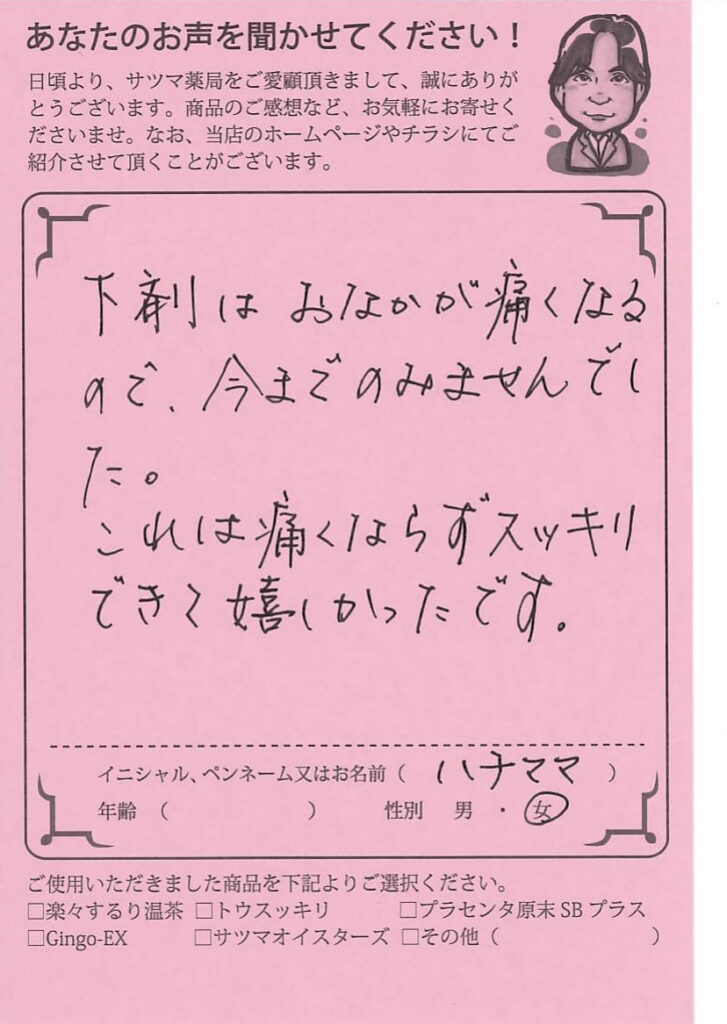 あなたのお声を聞かせてください！
日頃より、サツマ薬局をご愛顧頂きまして、誠にありが
とうございます。商品のご感想など、お気軽にお寄せく
ださいませ。なお、当店のホームページやチラシにてご
紹介させて頂くことがございます。
下剤は おなかが痛くなる
ので、今までのみませんでし
た。
これは痛くならずスッキリ
できて嬉しかったです。
イニシャル、ペンネーム又はお名前（ ハチママ ）
年齢 （ ） 性別 男 ・ 女
ご使用いただきました商品を下記よりご選択ください。
□楽々するり温茶 □トウスッキリ □プラセンタ原末 SB プラス
□Gingo-EX □サツマオイスターズ □その他（ ）